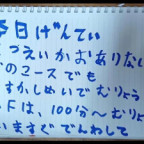 本日げんてい
つえいかおありない
のコースでも
すかしめいでむりょう
Fは、100分〜むりょ
いますぐでんわして